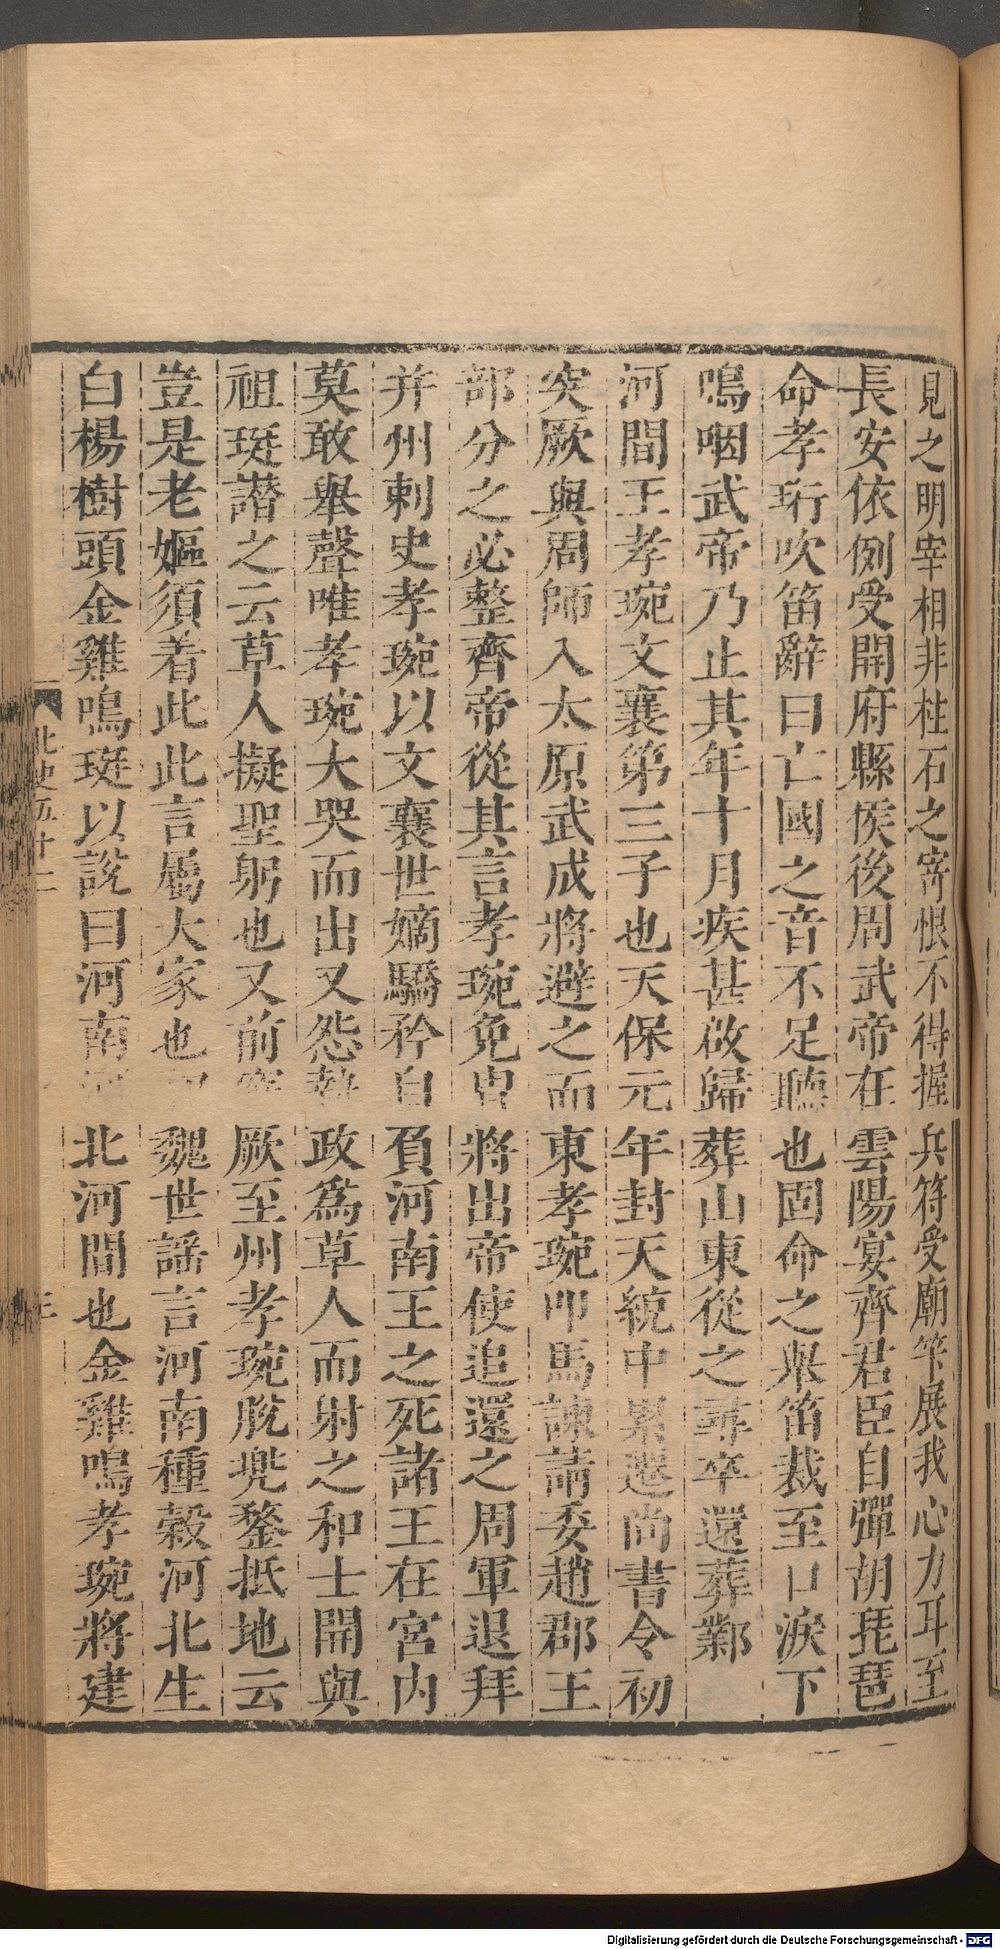 見之明宰相非柱石之寄恨不得握兵符受廟筭展我心力耳至
長安依例受開府縣侯後周武帝在雲陽宴齊君臣自彈胡琵琶
命孝珩吹笛辭曰亡國之音不足聽也固命之舉笛裁至口淚下
嗚咽武帝乃止其年十月疾甚啟歸葬山東從之尋卒還葬鄴
河間王孝琬文襄第三子也天保元年封天統中累遷尚書令初
突厥與周師入太原武成將避之而東孝琬叩馬諫請委趙郡王
部分之必整齊帝從其言孝琬免冑將出帝使追還之周軍退拜
并州刺史孝琬以文襄世嫡驕矜自負河南王之死諸王在宮內
莫敢舉聲唯孝琬大哭而出又怨執政爲草人而射之和士開與
祖珽譖之云草人擬聖躬也又前突厥至州孝琬脫兠鍪抵地云
豈是老嫗須着此此言屬大家也初魏世謡言河南種穀河北生
白楊樹頭金雞鳴珽以說曰河南河北河間也金雞鳴孝琬將建
北史五十二
三
Digitalisierung gefördert durch die Deutsche Forschungsgemeinschaft - DFG